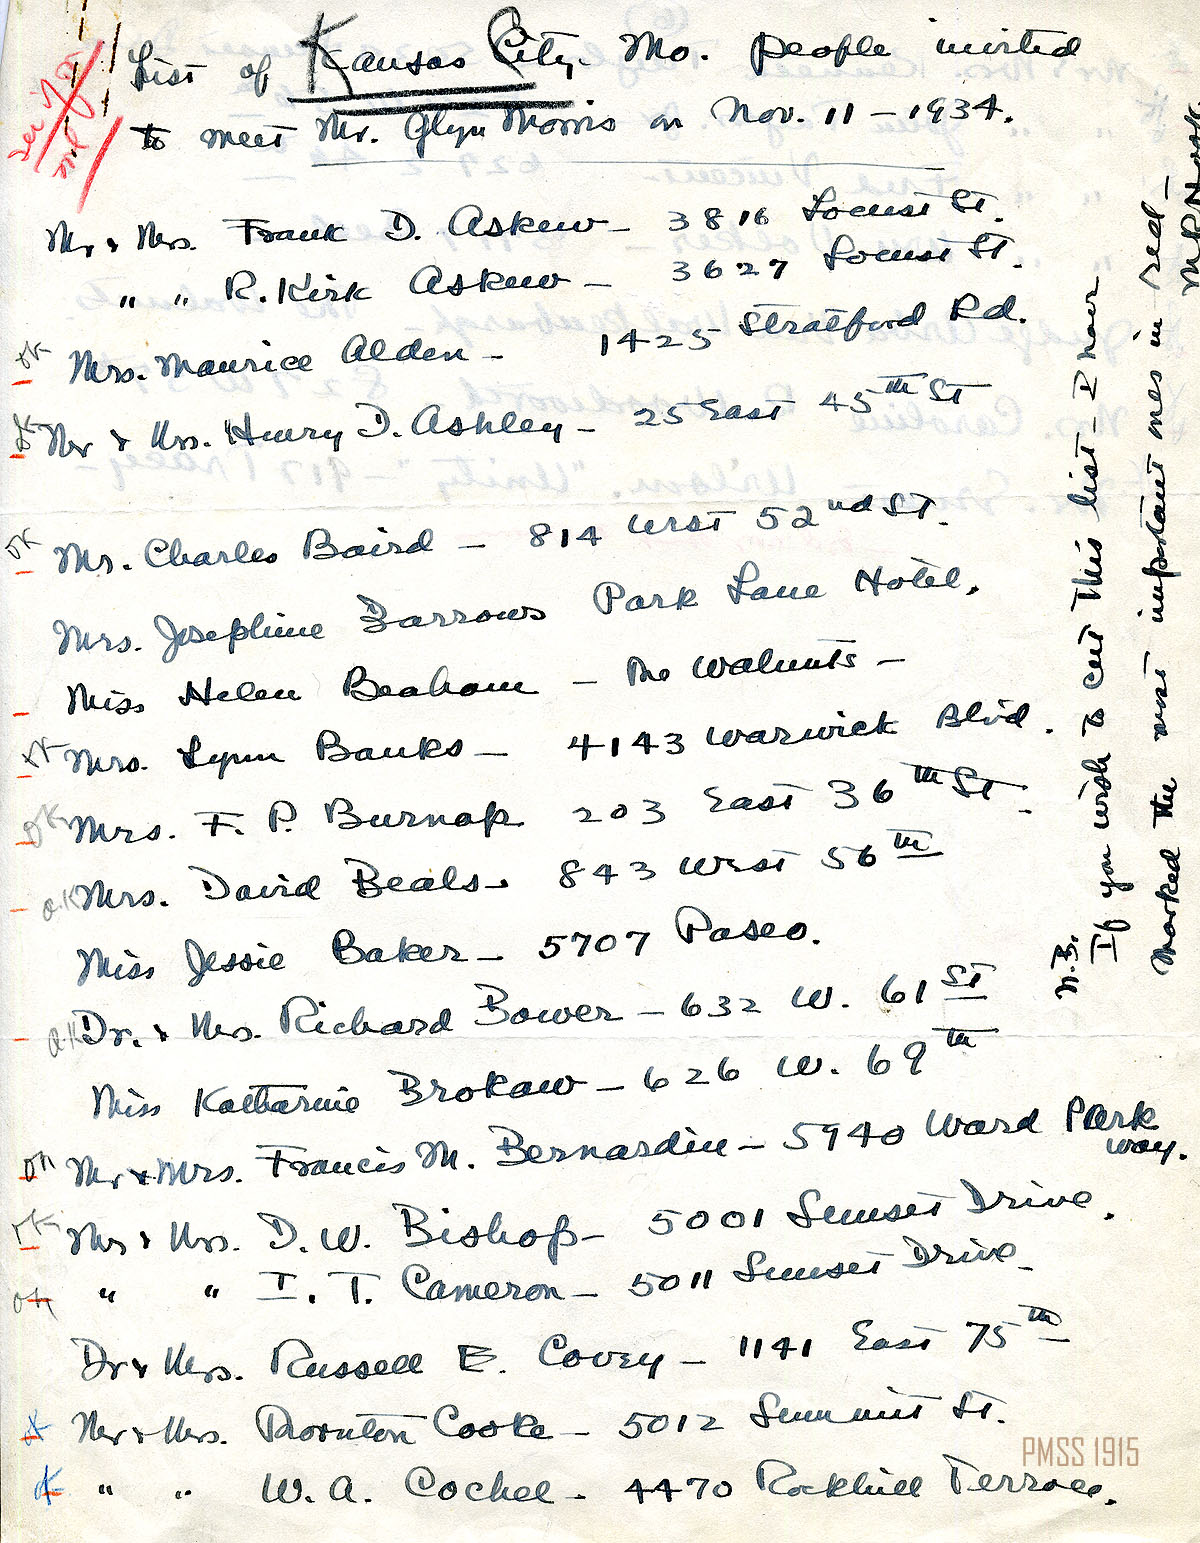 List of Kansas City, Mo. people invited
to meet Mr. Glyn Morris on Nov. 11 - 1934.
Mr & Mrs. Frank D. Askew - 3816 Locust St.
" " R. Kirk Askew - 3627 Locust St.
ok Mrs. Maurice Alden - 1425 Stratford Rd.
ok Mr & Mrs. Henry D. Ashley - 25 East 45th St
ok Mr. Charles Baird - 814 West 52nd St.
Mrs. Josephine Barrows Park Lane Hotel.
Miss Helen Beaham - The Walnuts -
ok Mrs. Lynn Banks - 4143 Warwick Blvd.
ok Mrs. F. P. Burnap 203 East 36th St.
o.k Mrs. David Beals - 843 West 56th
Miss Jessie Baker - 5707 Paseo.
o.k Dr. & Mrs. Richard Bower - 632 W. 61 St
Miss Katharine Brokaw - 626 W. 69th
ok Mr & Mrs. Francis M. Bernardin - 5940 Ward Park
way.
ok Mr & Mrs. D. W. Bishop - 5001 Sunset Drive.
ok " " I. T. Cameron - 5011 Sunset Drive -
Dr & Mrs. Russell E. Covey - 1141 East 75th
ok Mr & Mrs. Thornton Cooke - 5012 Summit St.
ok " " W. A. Cochel - 4470 Rockhill Terrace.
N.B.
If you wish to cut this list - I have
marked the most important ones in red -
PMSS 1915